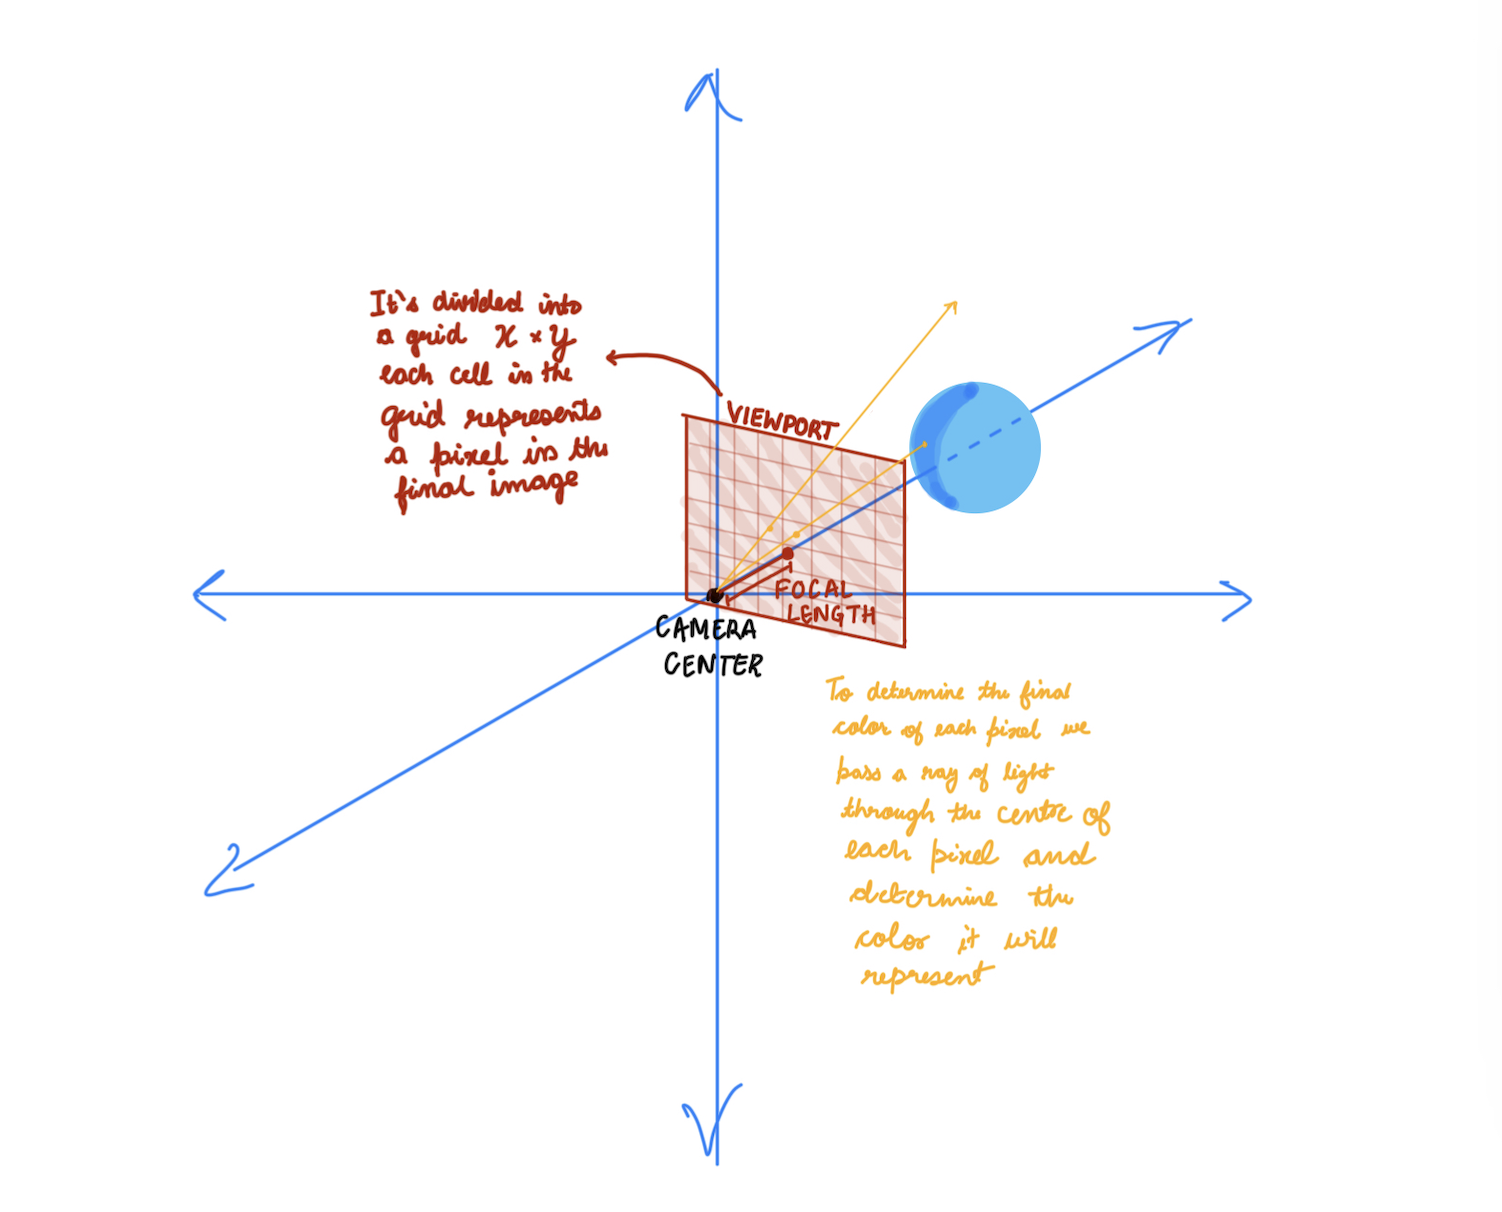 It's divided into
a grid X × Y
each cell in the
grid represents
a pixel in the
final image
VIEWPORT
FOCAL
LENGTH
CAMERA
CENTER
To determine the final
color of each pixel we
pass a ray of light
through the centre of
each pixel and
determine the
color it will
represent